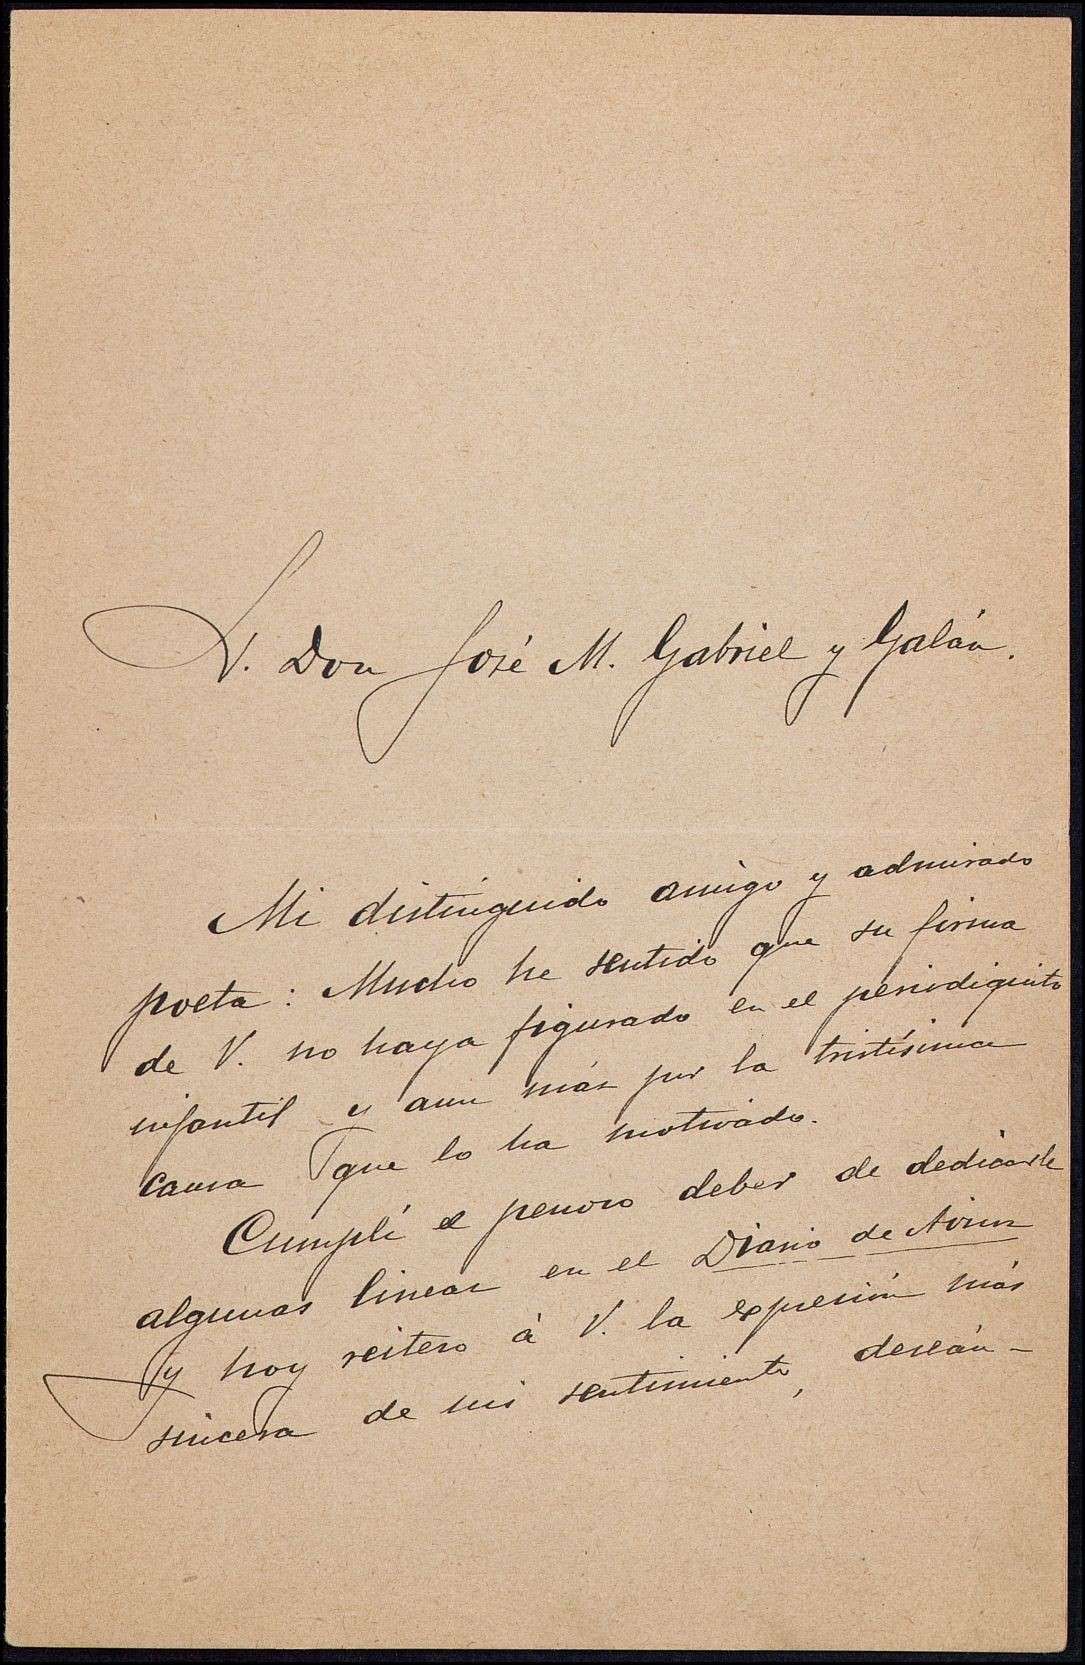 S. Don José M. Gabriel y Galán.
Mi distinguido amigo y admirado
poeta: Mucho he sentido que su firma
de V. no haya figurado en el periodiquito
infantil y aun más por la tristísima
causa que lo ha motivado.
Cumplí el penoso deber de dedicarle
algunas lineas en el Diario de Avisos
y hoy reitero á V. la expresión más
sincera de mi sentimiento, deseán-